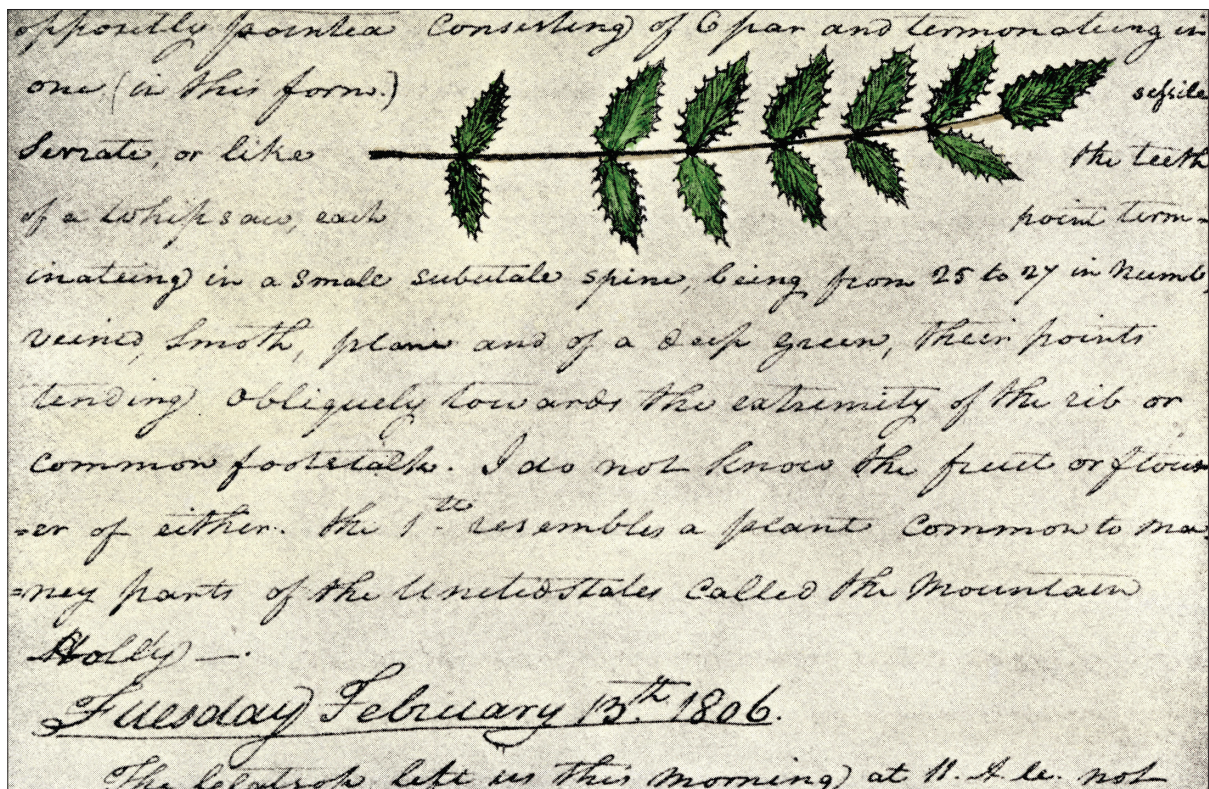 oppositly pointed Consisting of 6 par and termonateing in
one (in this form.) sessile
Serrate, or like the teeth
of a whipsaw, each point term-
inateing in a small subulate spine, being from 25 to 27 in Numb
veined, Smoth, plane and of a deep green, their points
tending obliquely towards the extremity of the rib or
common footstalk. I do not know the fruit or flow
=er of either. the 1st resembles a plant Common to ma
=ney parts of the United States Called the Mountain
Holly —.
Tuesday February 13th 1806.
The Clatsops left us this morning at 11. A.M. not